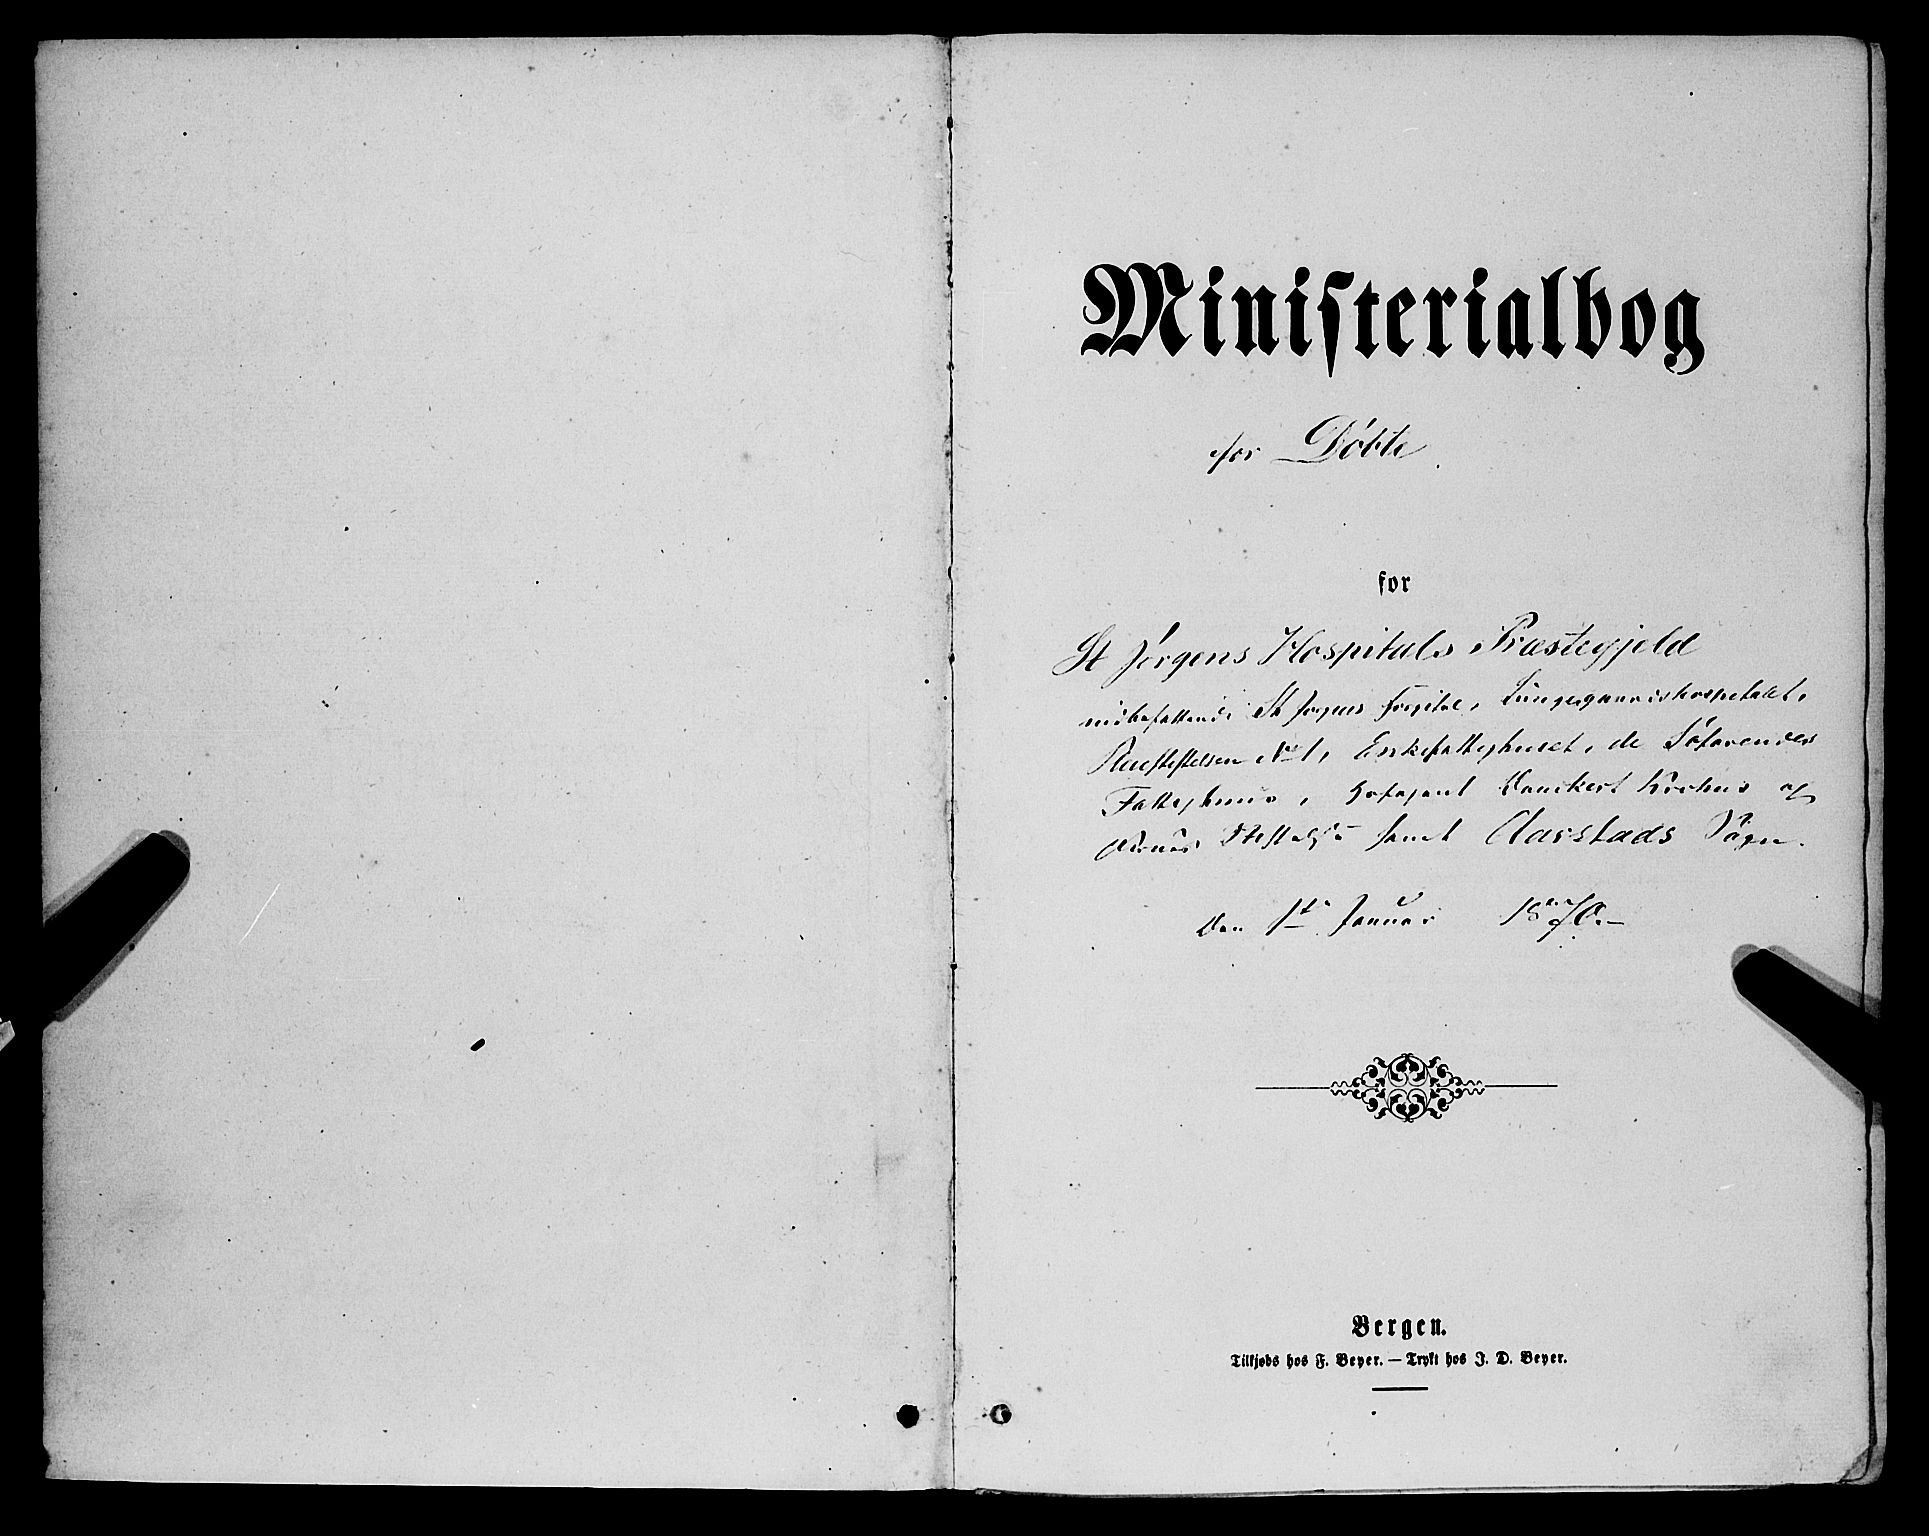 Ministerialbog
for Döbte
for
St Jörgens Hospitals Præstegjeld
indbefattende St Jørgens Hospital, Lungegaardshospitalet,
Pleiestiftelsen No 1, Enkefattighuset, de Söfarendes
Fattighuus, Danckert Krohns og
Stiftelse samt Aarstads Sogn.
Den 1ste Januar 1870.
Bergen.
Tilkjøbs hos F. Beyer. — Trykt hos J. D. Beyer.